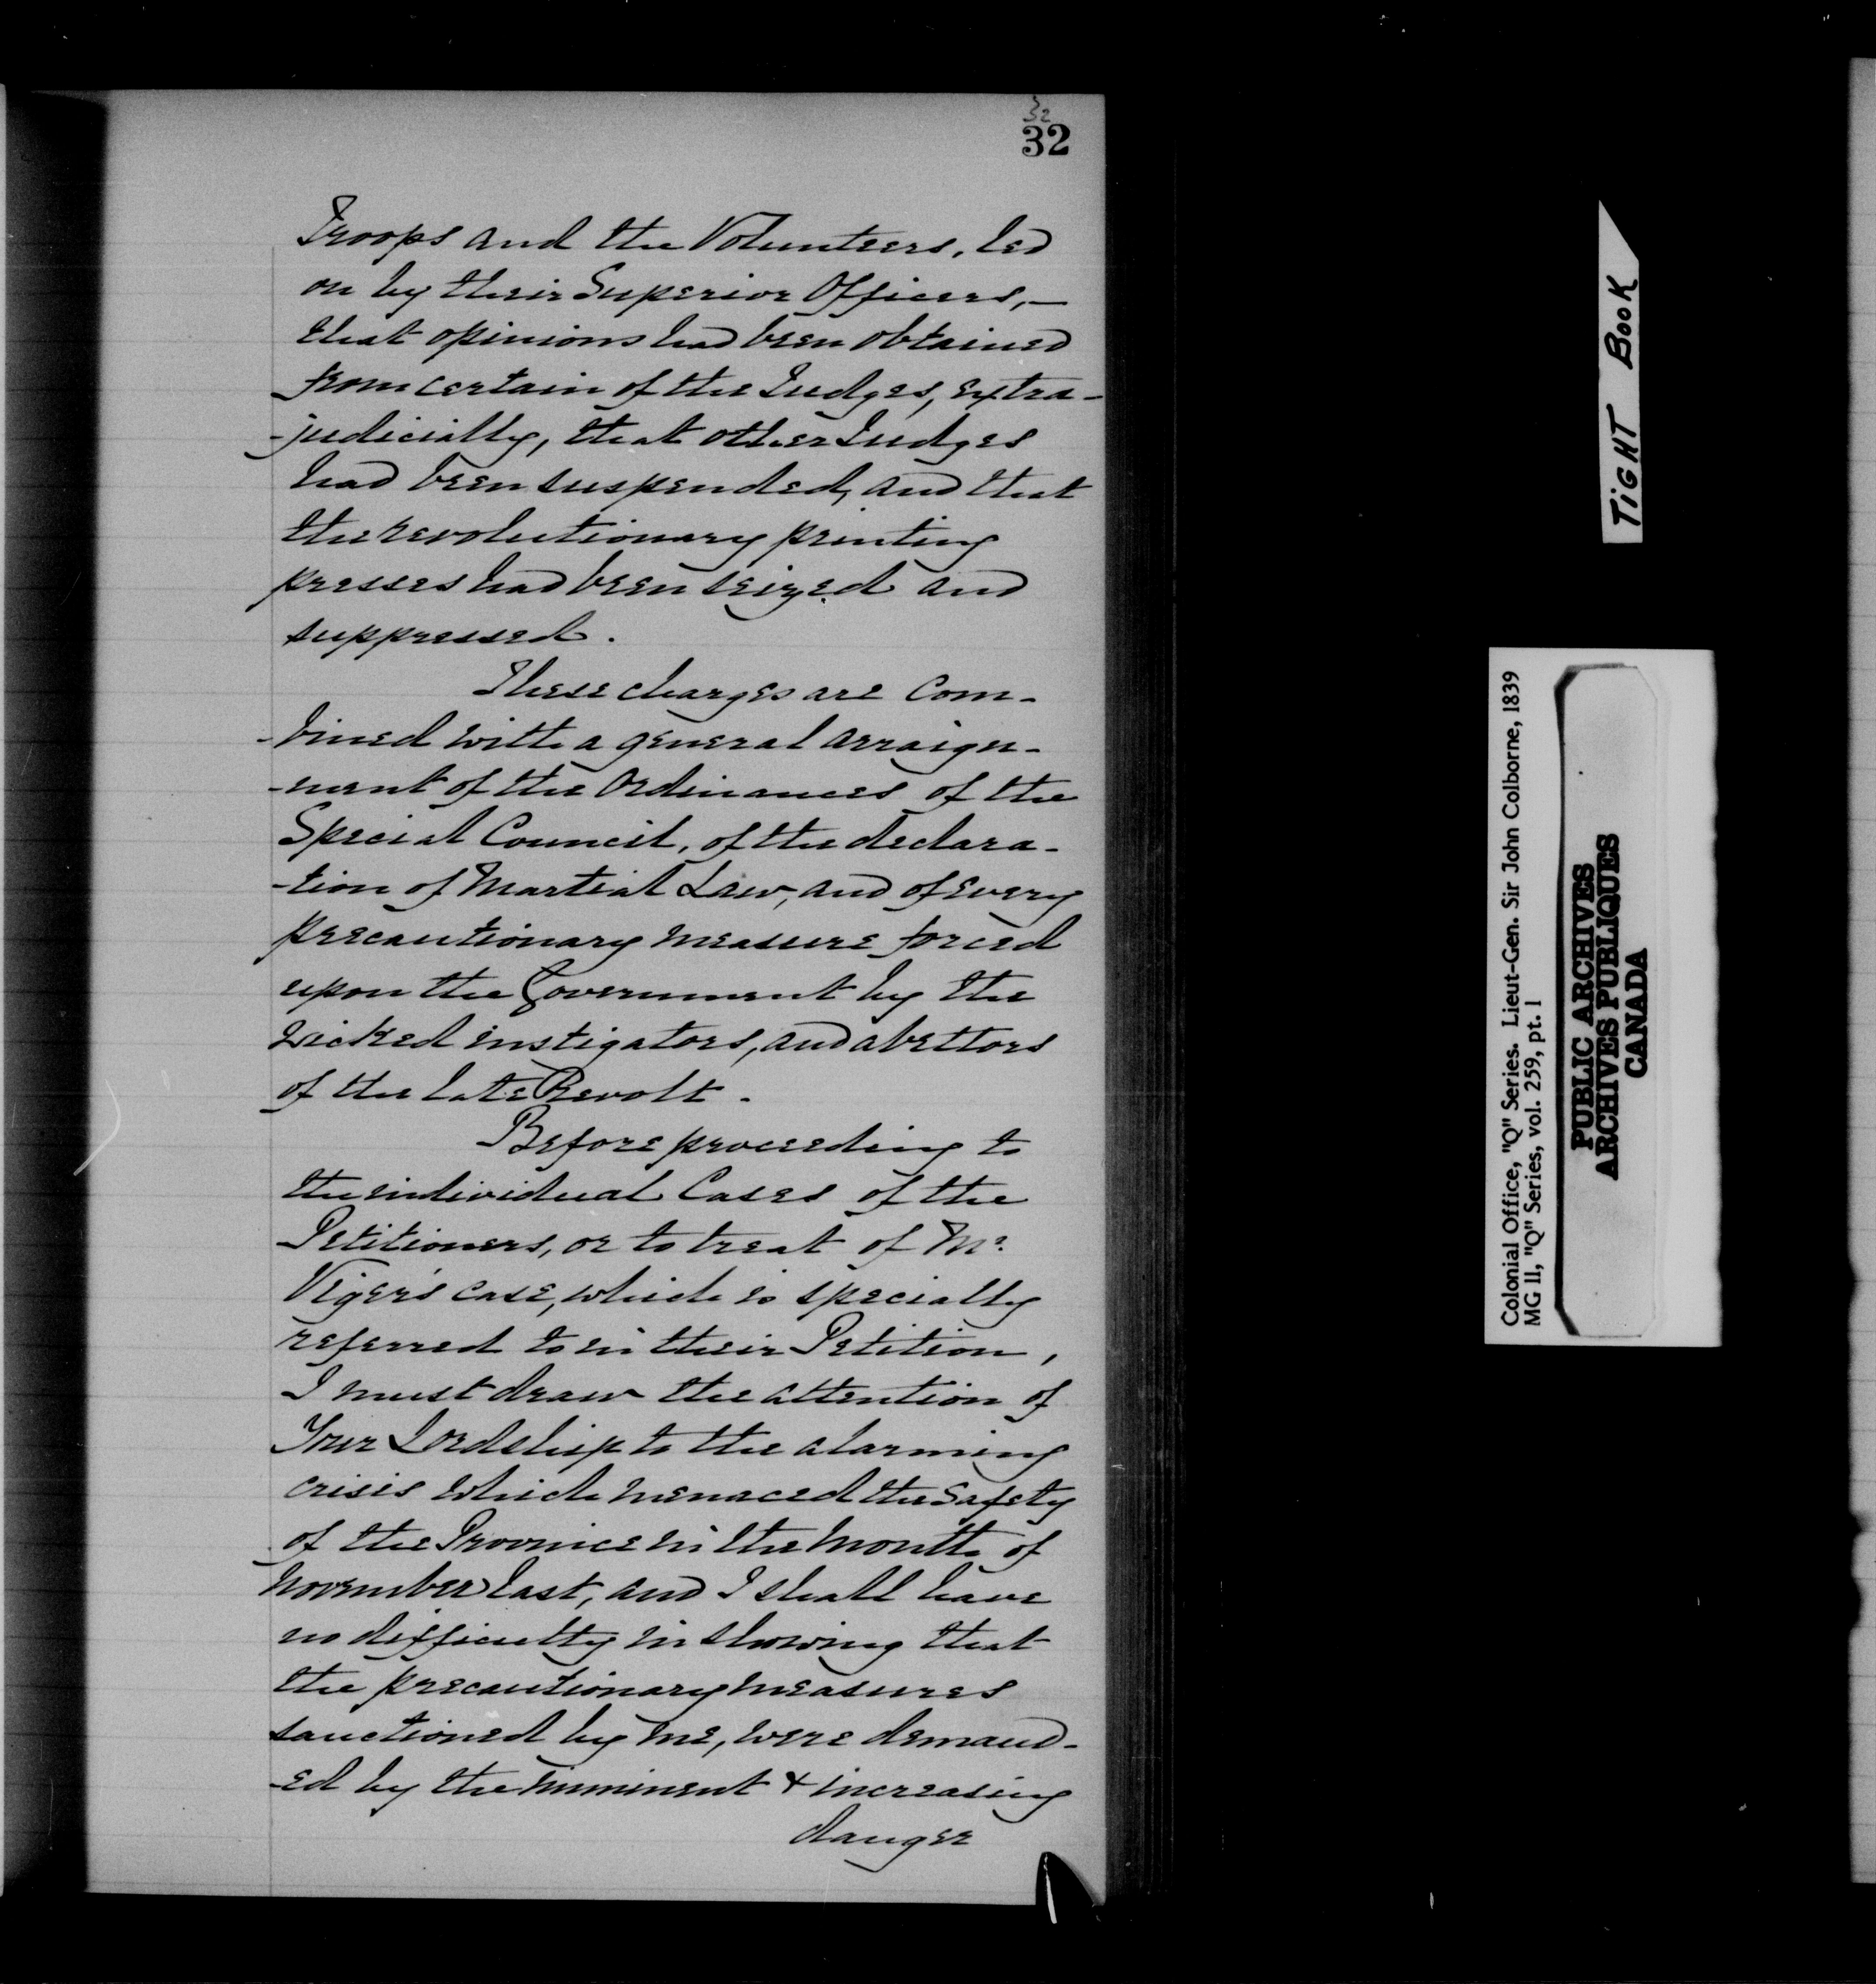 32
32
Troops and the Volunteers, led
on by their Superior Officers,—
that opinions had been obtained
from certain of the Judges, extra-
-judicially, that other Judges
had been suspended, and that
the revolutionary printing
presses had been seized and
suppressed.
These charges are com-
-bined with a general arraign-
-ment of the Ordinances of the
Special Council, of the declara-
-tion of Martial Law, and of every
precautionary measure forced
upon the Government by the
wicked instigators, and abettors
of the late Revolt.
Before proceeding to
the individual Cases of the
Petitioners, or to treat of Mr.
Viger's case, which is specially
referred to in their Petition,
I must draw the attention of
Your Lordship to the alarming
crisis which menaced the Safety
of the Province in the month of
November last, and I shall have
no difficulty in showing that
the precautionary measures
sanctioned by me, were demand-
-ed by the imminent & increasing
danger
TIGHT BOOK
Colonial Office, "Q" Series. Lieut-Gen. Sir John Colborne, 1839
MG 11, "Q" Series, vol. 259, pt. 1
PUBLIC ARCHIVES
ARCHIVES PUBLIQUES
CANADA